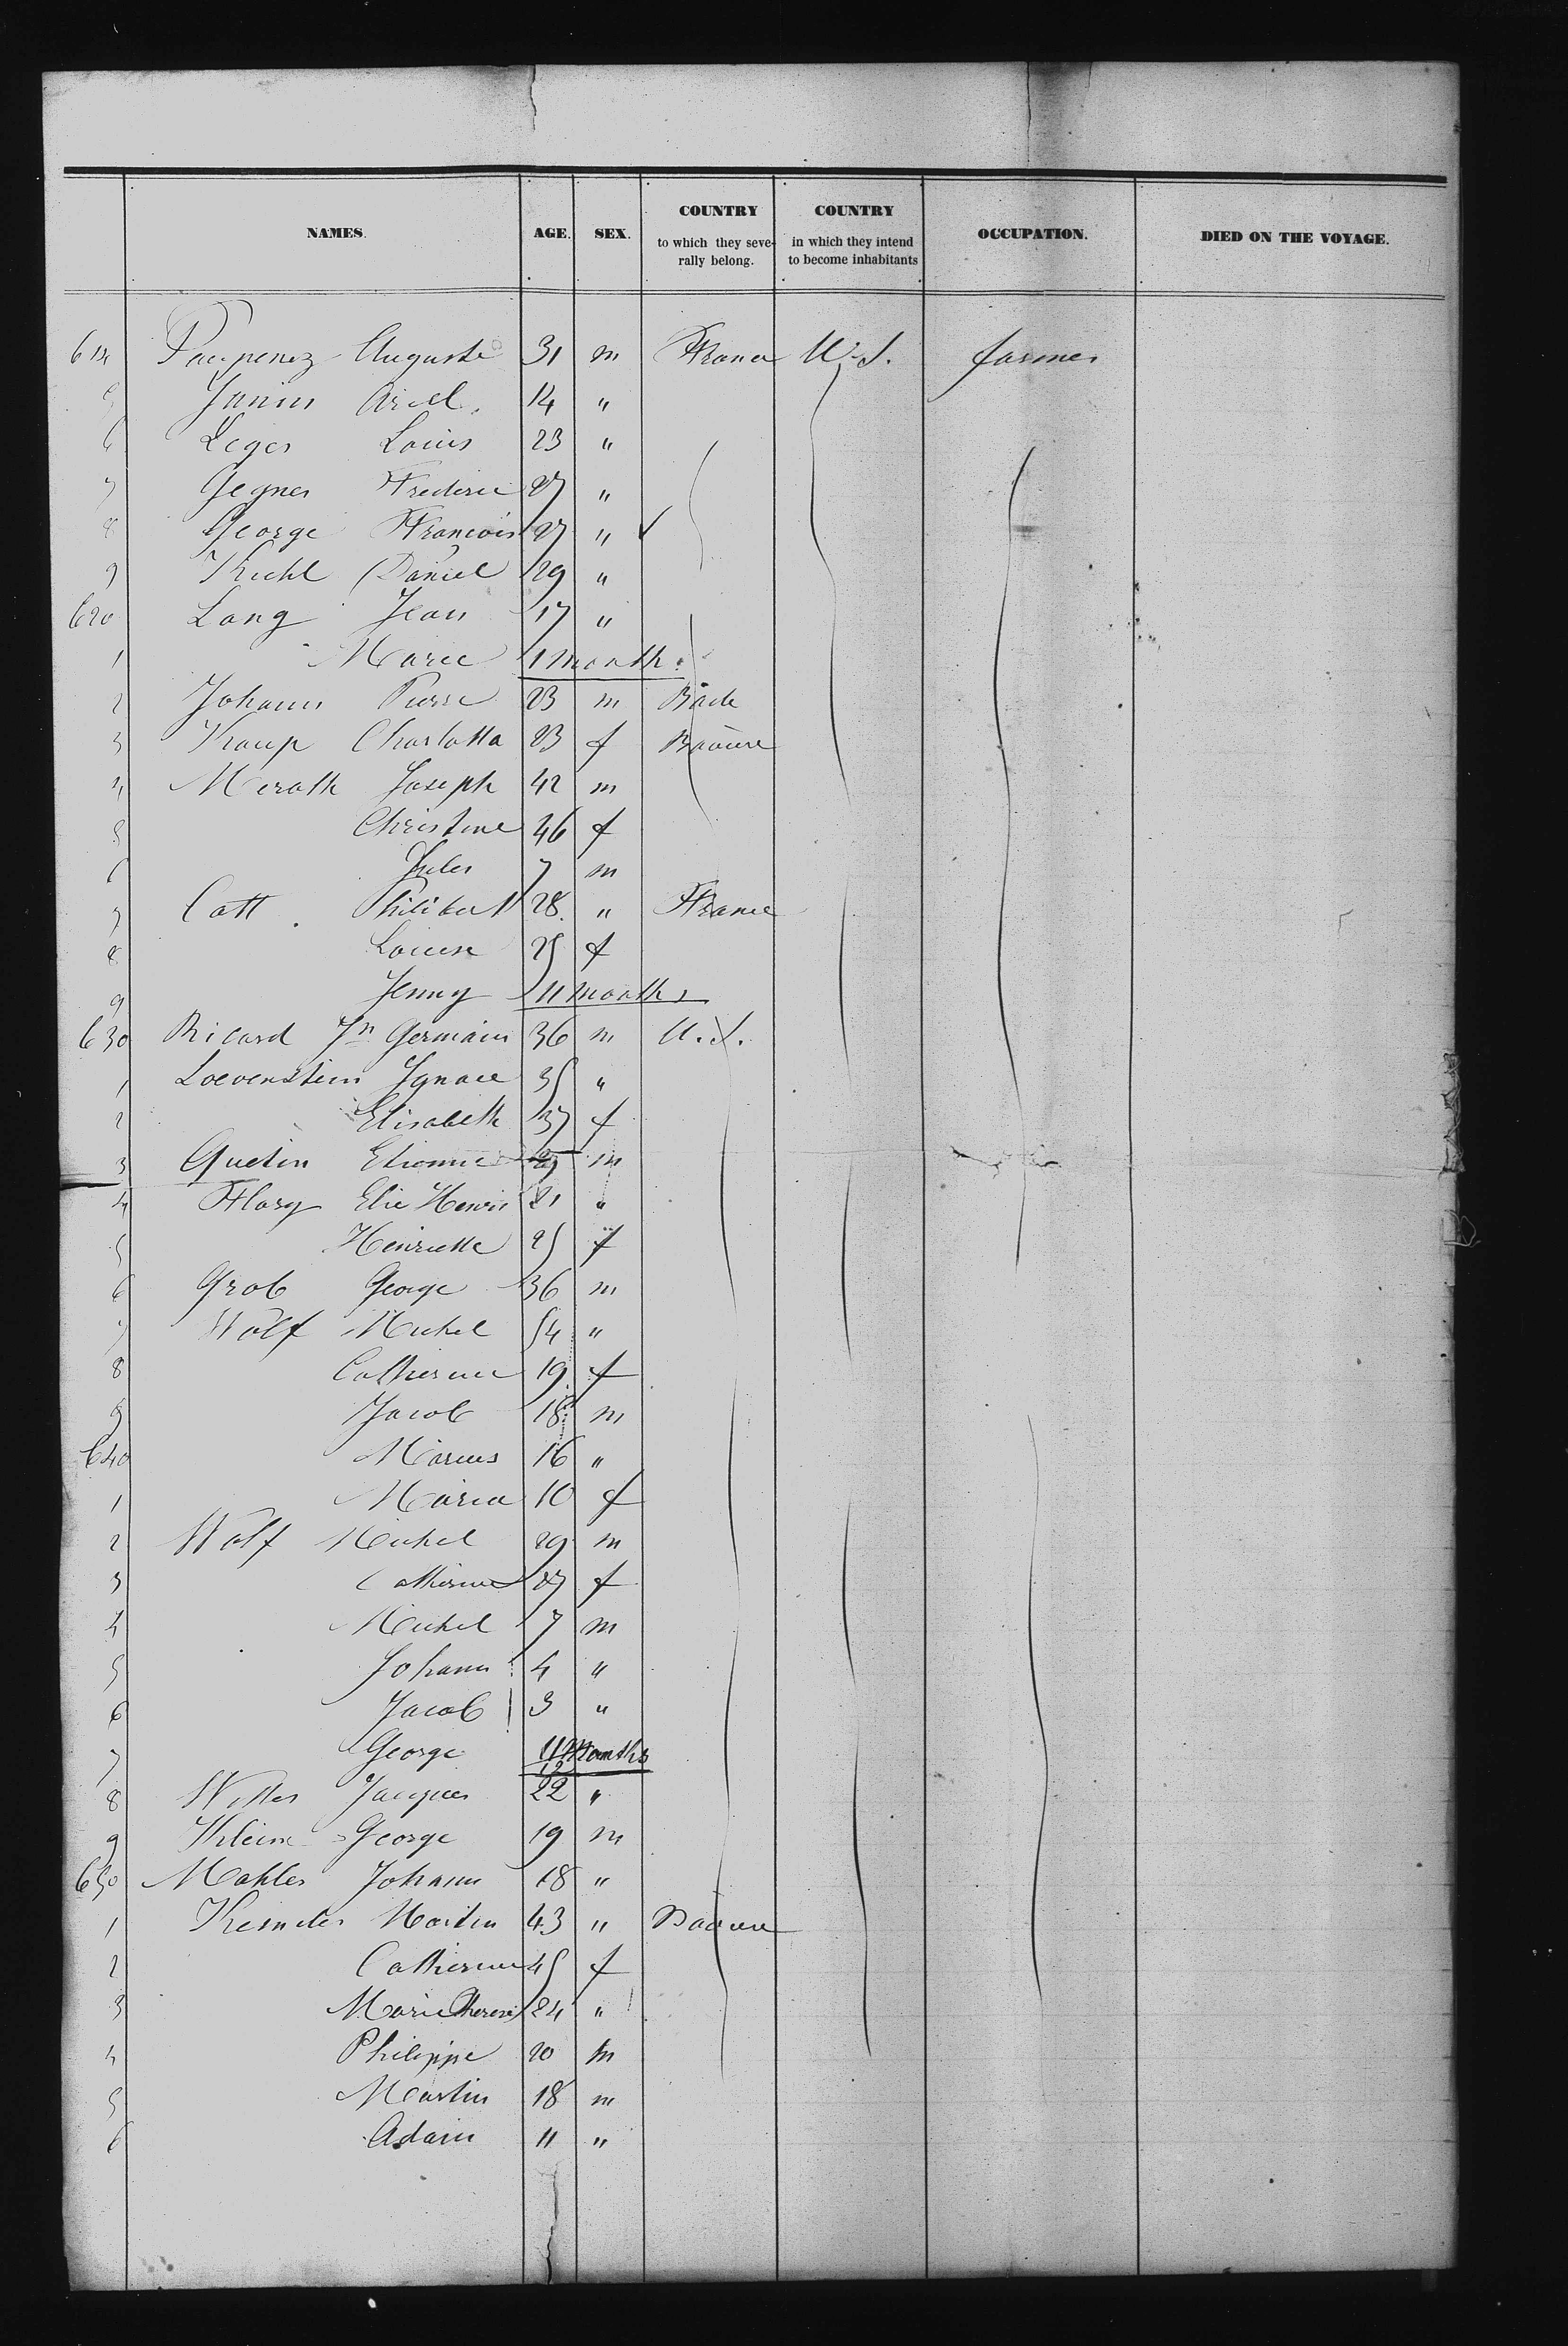 NAMES. AGE. SEX. COUNTRY to which they severally belong. COUNTRY in which they intend to become inhabitants OCCUPATION. DIED ON THE VOYAGE.
614 Auguste 31 m France U.S. farmer
5 Janin 14 "
6 Leger Louis 23 "
7 Gegner Frederic 27 "
8 George Francois 27 " ✓
9 Kuhl Daniel 29 "
620 Lang Jean 17 "
1 Marie 1 month
2 Johann Pierre 23 m Bade
3 Kaup Charlotta 23 f Baviere
4 Merath Joseph 42 m
5 Christine 46 f
6 Jules 7 m
7 Catt Philibert 28 " France
8 Louise 25 f
9 Jenny 11 months
630 Ricard Jn Germain 36 m U.S.
1 Loevenstein Ignace 35 "
2 Elisabeth 37 f
3 Quetin Etienne m
4 Flory Elie Henri 21 "
5 Henriette 25 f
6 Grob George 36 m
7 Wolf Michel 54 "
8 Catherine 19 f
9 Jacob 18 m
640 Marius 16 "
1 Maria 10 f
2 Wolf Michel 29 m
3 Catherine 27 f
4 Michel 7 m
5 Johann 4 "
6 Jacob 3 "
7 George 11/12 Months
8 Witter Jacques 22 "
9 Klein George 19 m
650 Mahler Johann 18 "
1 Martin 43 " Baviere
2 Catherine 45 f
3 Marie Therese 24 "
4 Philippe 20 m
5 Martin 18 m
6 Adam 11 "